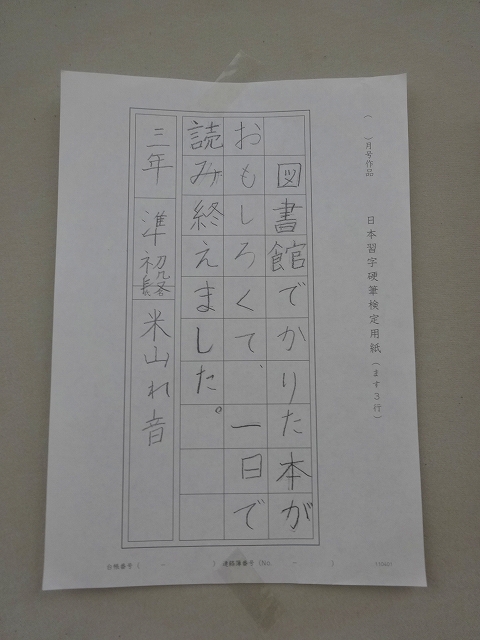 (　)月号作品
日本習字硬筆検定用紙(ます3行)
図書館でかりた本が
おもしろくて、一日で
読み終えました。
三年 準初段 米山れ音
会帳番号(　-　)